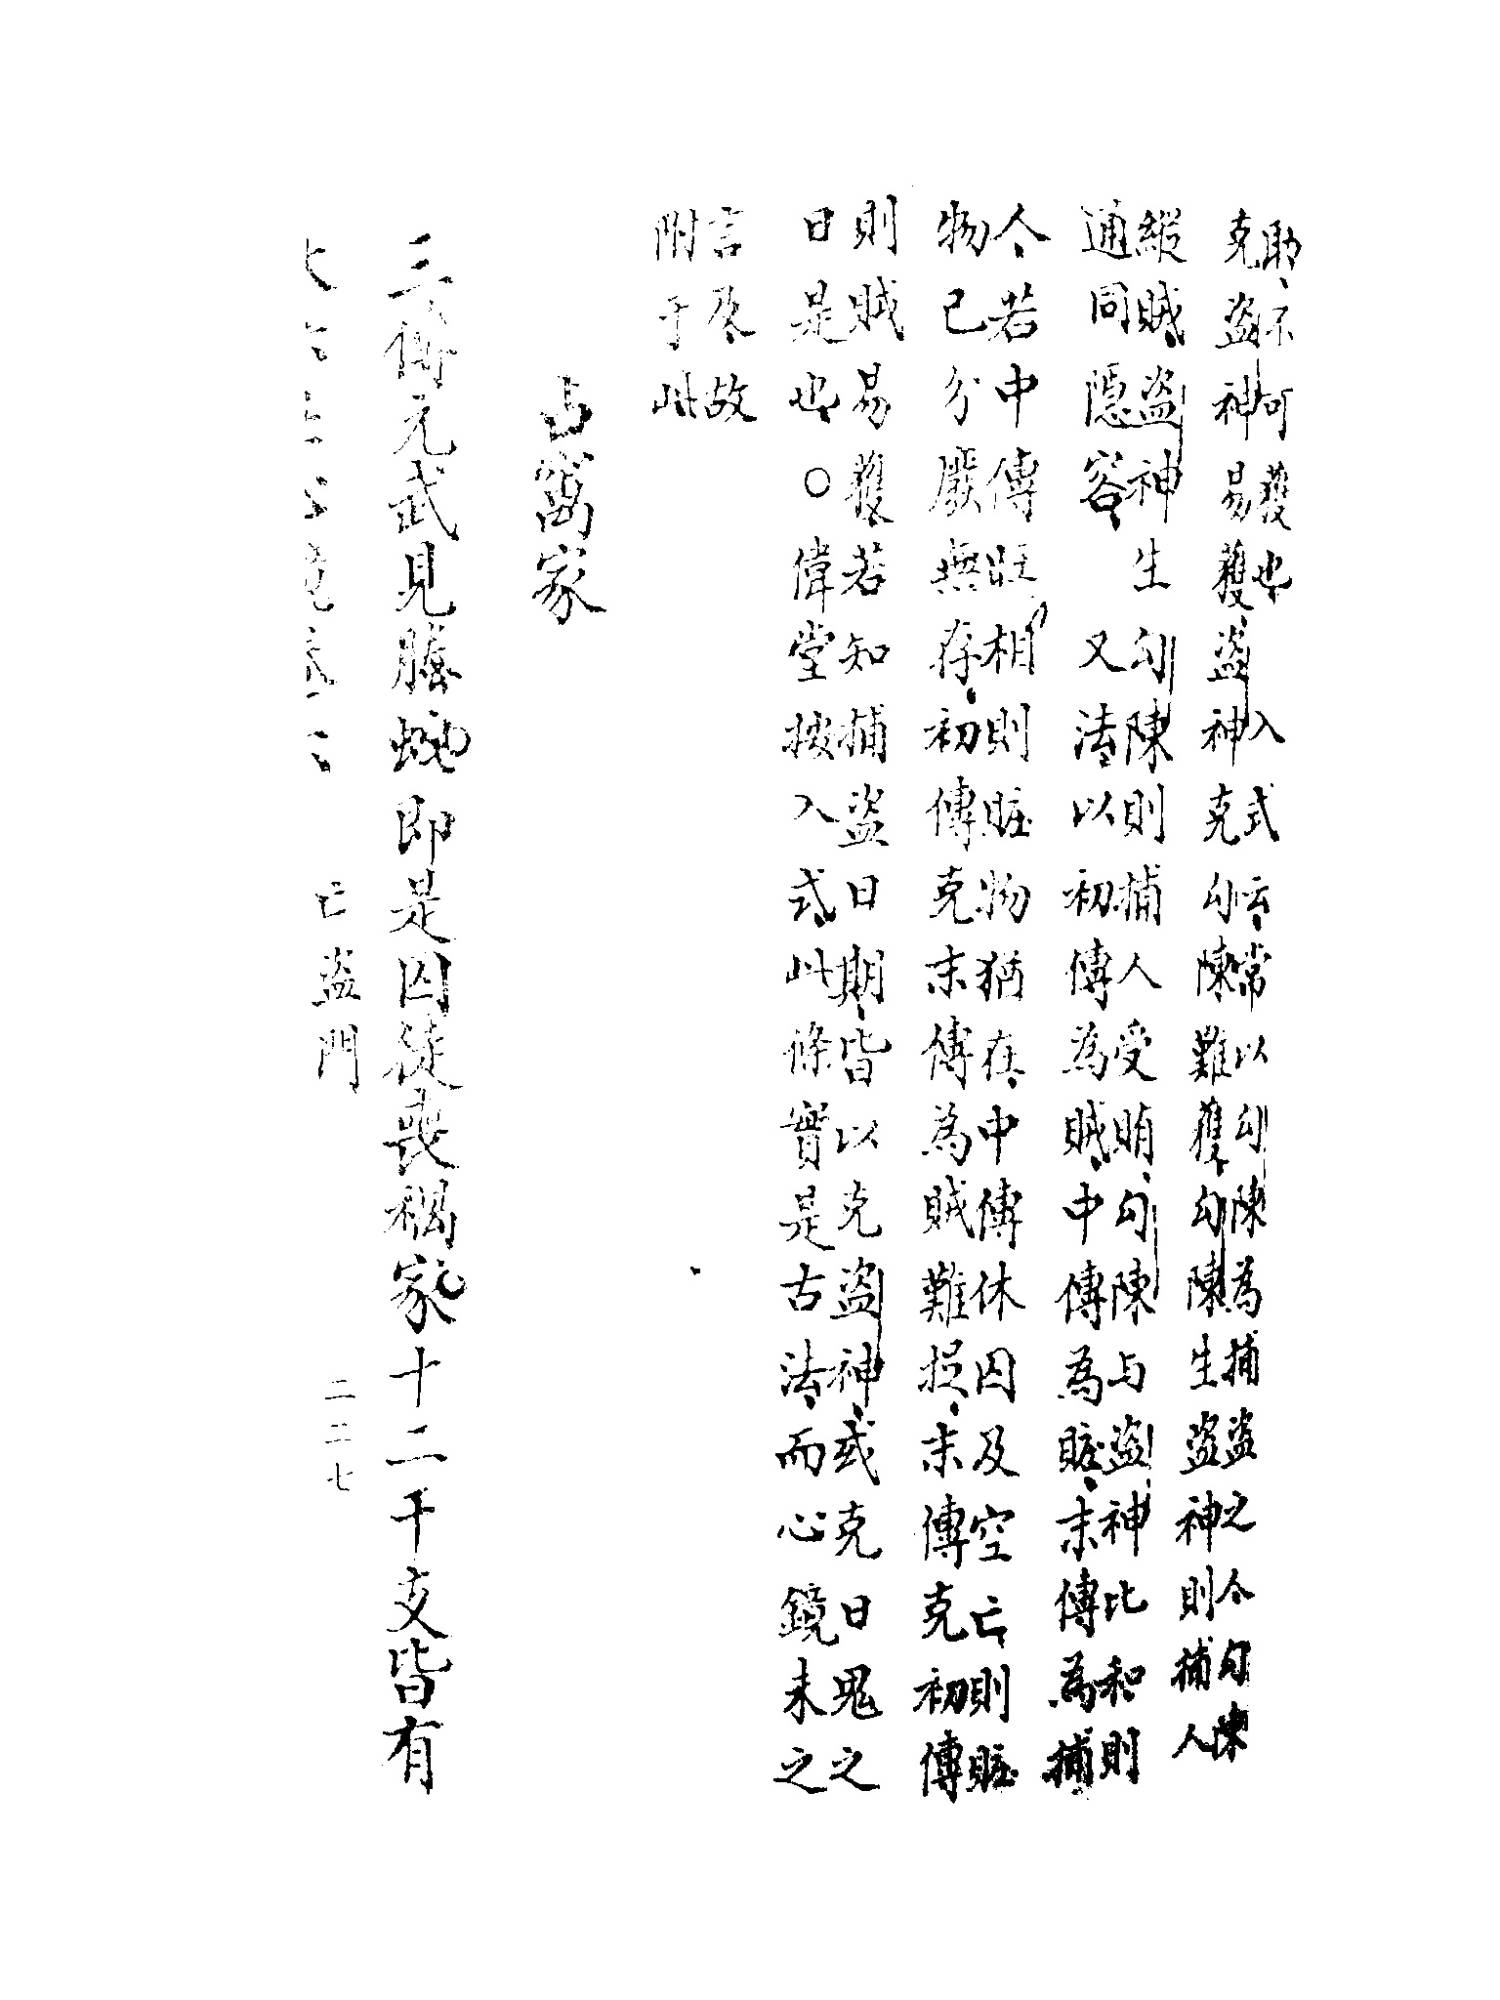 助、不可獲也　入式云、常以勾陳為捕盜之今勾陳
克盜神易獲、盜神克勾陳難獲、勾陳生盜神則捕人
縱賊、盜神生勾陳則捕人受賄、勾陳与盜神比和則
通同隱容、又法以初傳為賊、中傳為賍、末傳為捕
人、若中傳旺相則賍物猶在、中傳休囚及空亡、則賍
物已分厰無存、初傳克末傳為賊難捉、末傳克初傳
則賊易獲、若知捕盜日期、皆以克盜神、或克日鬼之
日是也、○偉堂按入式、此條實是古法、而心鏡未之
言及、故
附于此
占窩家
三傳元武見螣蛇即是囚徒喪禍家十二干支皆有
亡盜門
二二七